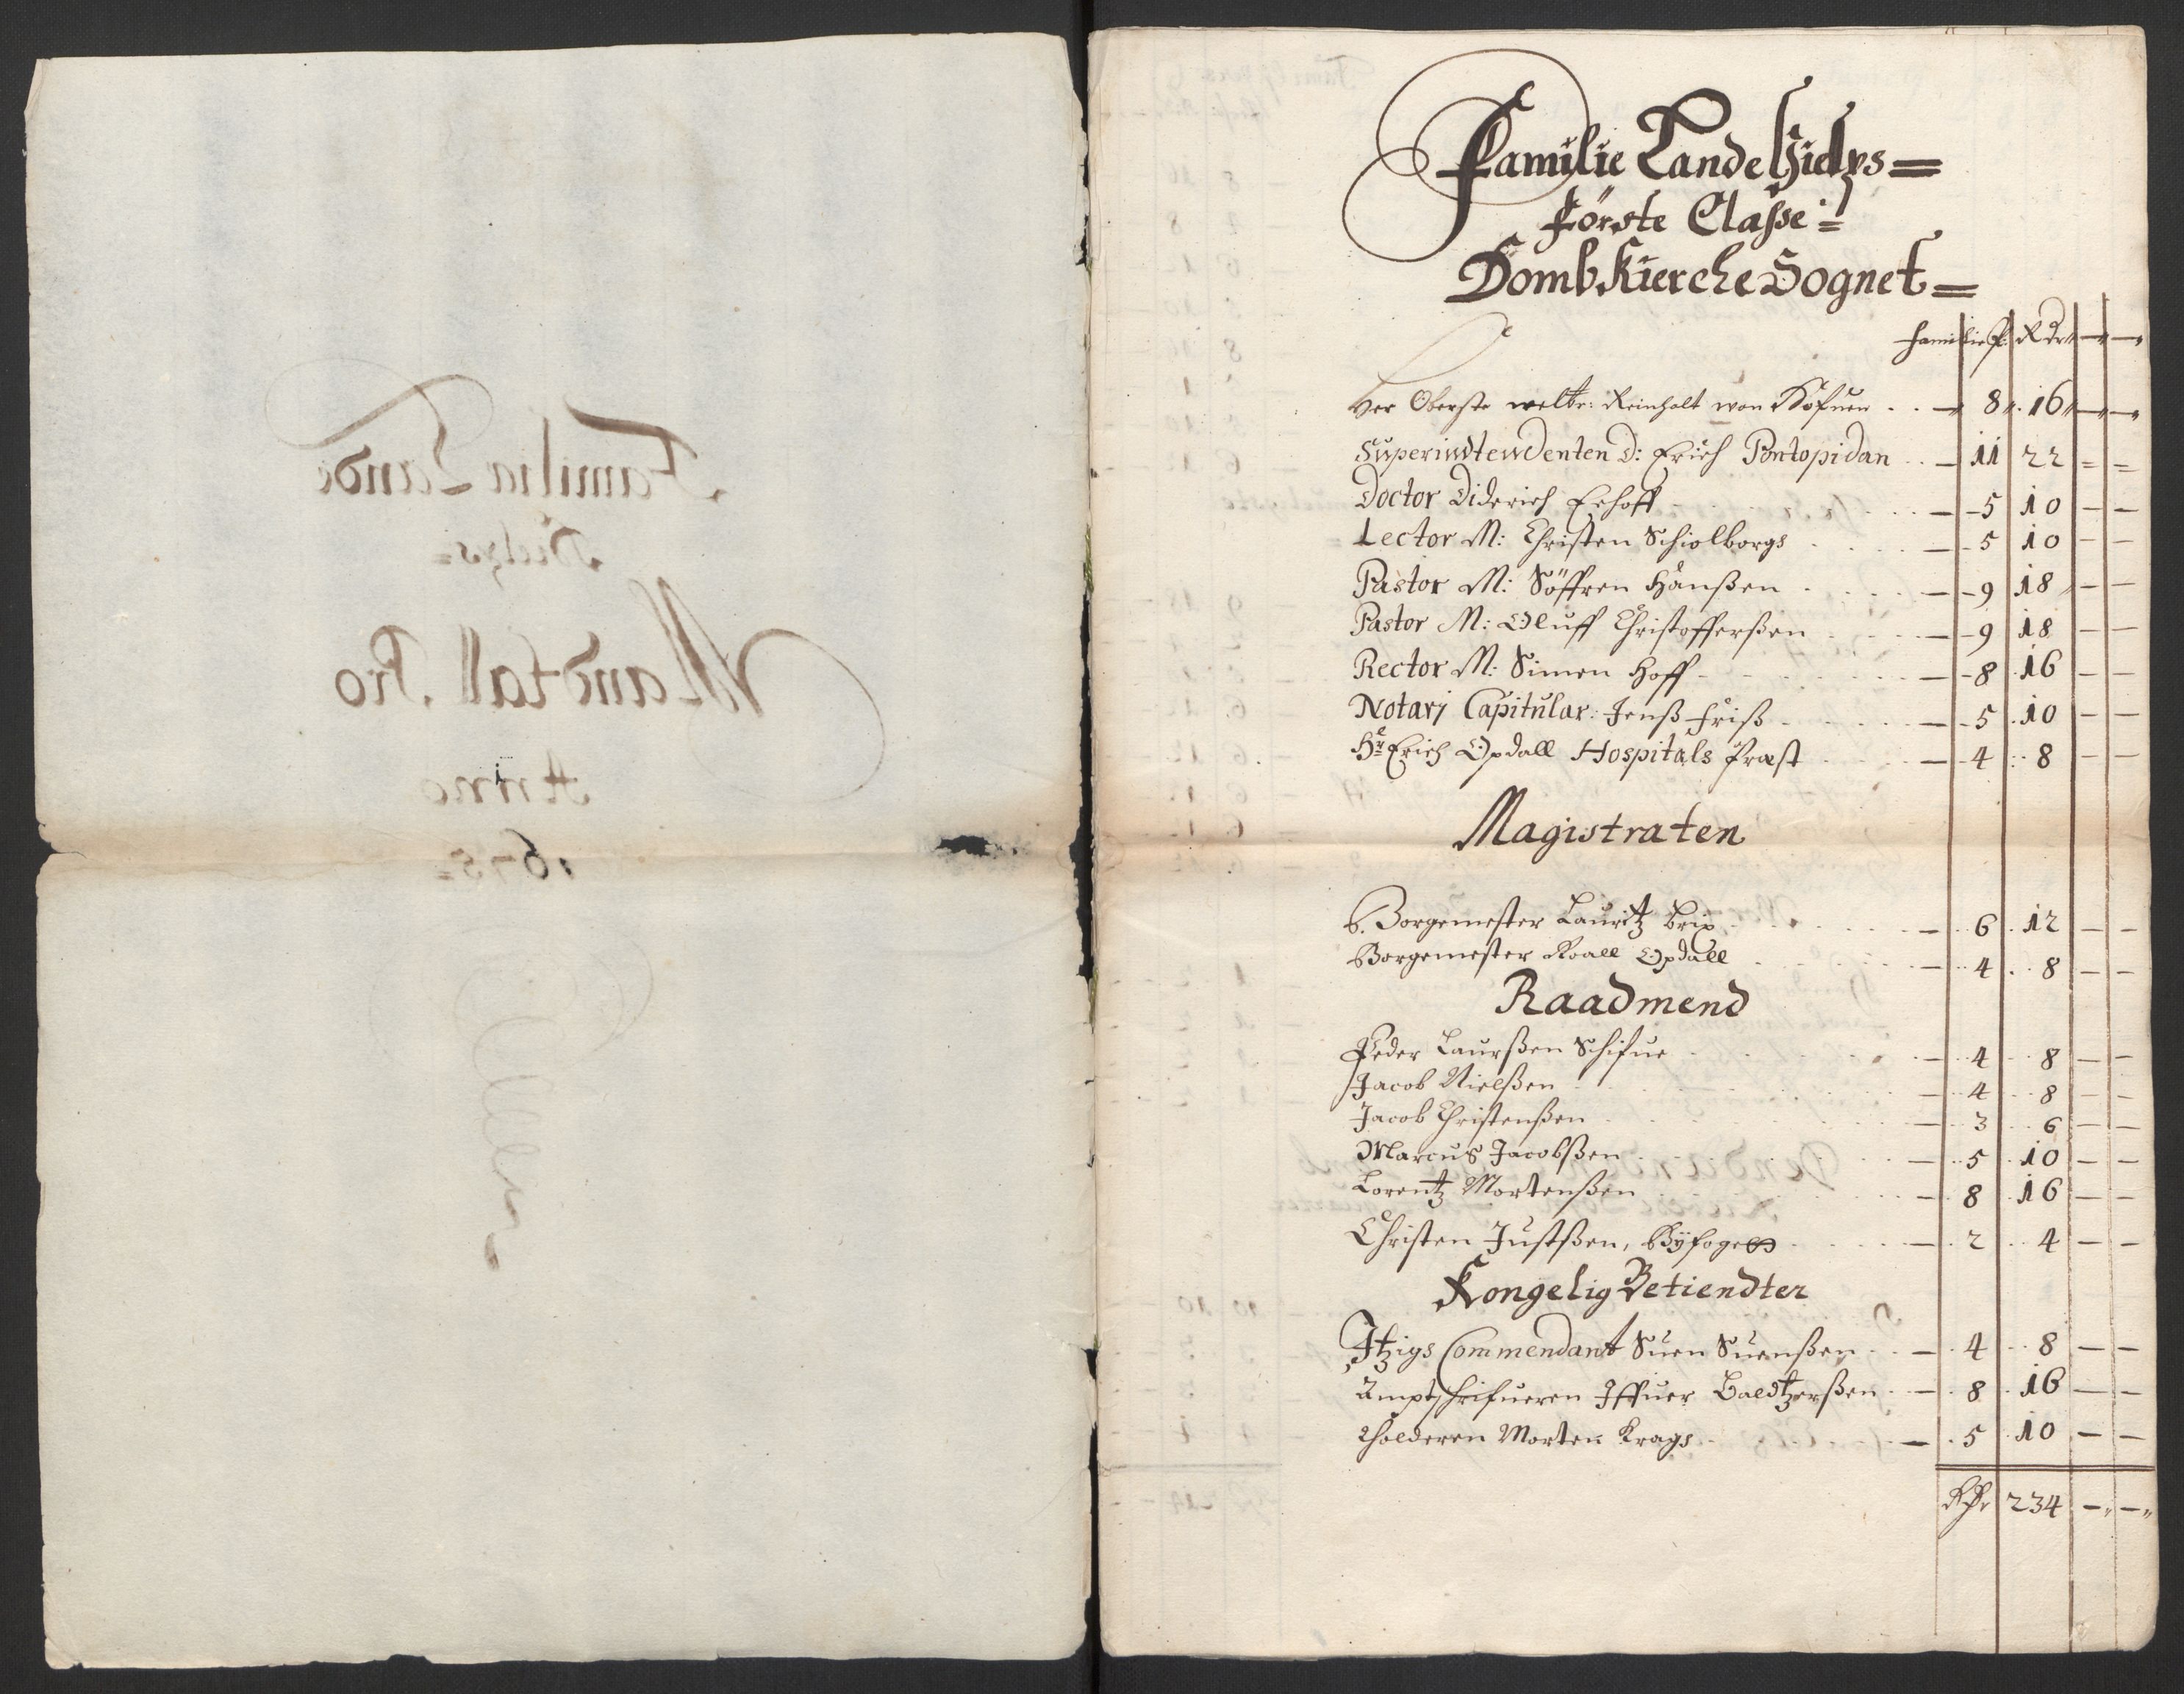 Familia Lande
Hielps =
Mandtall Pro
Anno
1678 =
Familie Lande Hielps =
Förste Classe :=
Domb Kierche Sognet =
familie P. Rdr
Her Oberste weltr: Reinholt von Hofuen .. 8 . 16
Superintendenten D: Erich Pontopidan .. 11 22 = =
Doctor Diderich Erhoff 5 10 — —
Lector M: Christen Schiolborgs 5 10 — —
Pastor M: Söffren Hanßen 9 18 — —
Pastor M: Oluff Christofferßen 9 18 — —
Rector M: Simen Hoff 8 16 — —
Notarj Capitular: Jenß friß 5 10 — —
Hr Erich Opdall Hospitals Præst 4 8 — —
Magistraten
B. Borgemester Lauritz Brix 6 12 — —
Borgemester Roall Opdall 4 8 — —
Raadmend
Peder Laurßen Schifue 4 8 — —
Jacob Nielßen 4 8 — —
Jacob Christenßen 3 6
Marcus Jacobßen 5 10 — —
Lorentz Mortenßen 8 16 — —
Christen Justßen, Byfoget 2 4 — —
Kongelig Betiendter
Itzige Commendant Suen Suenßen 4 8 — —
Amptschrifueren Iffuer Baldtzerßen 8 16 — —
Tholderen Morten Krags 5 10 — —
234 — —